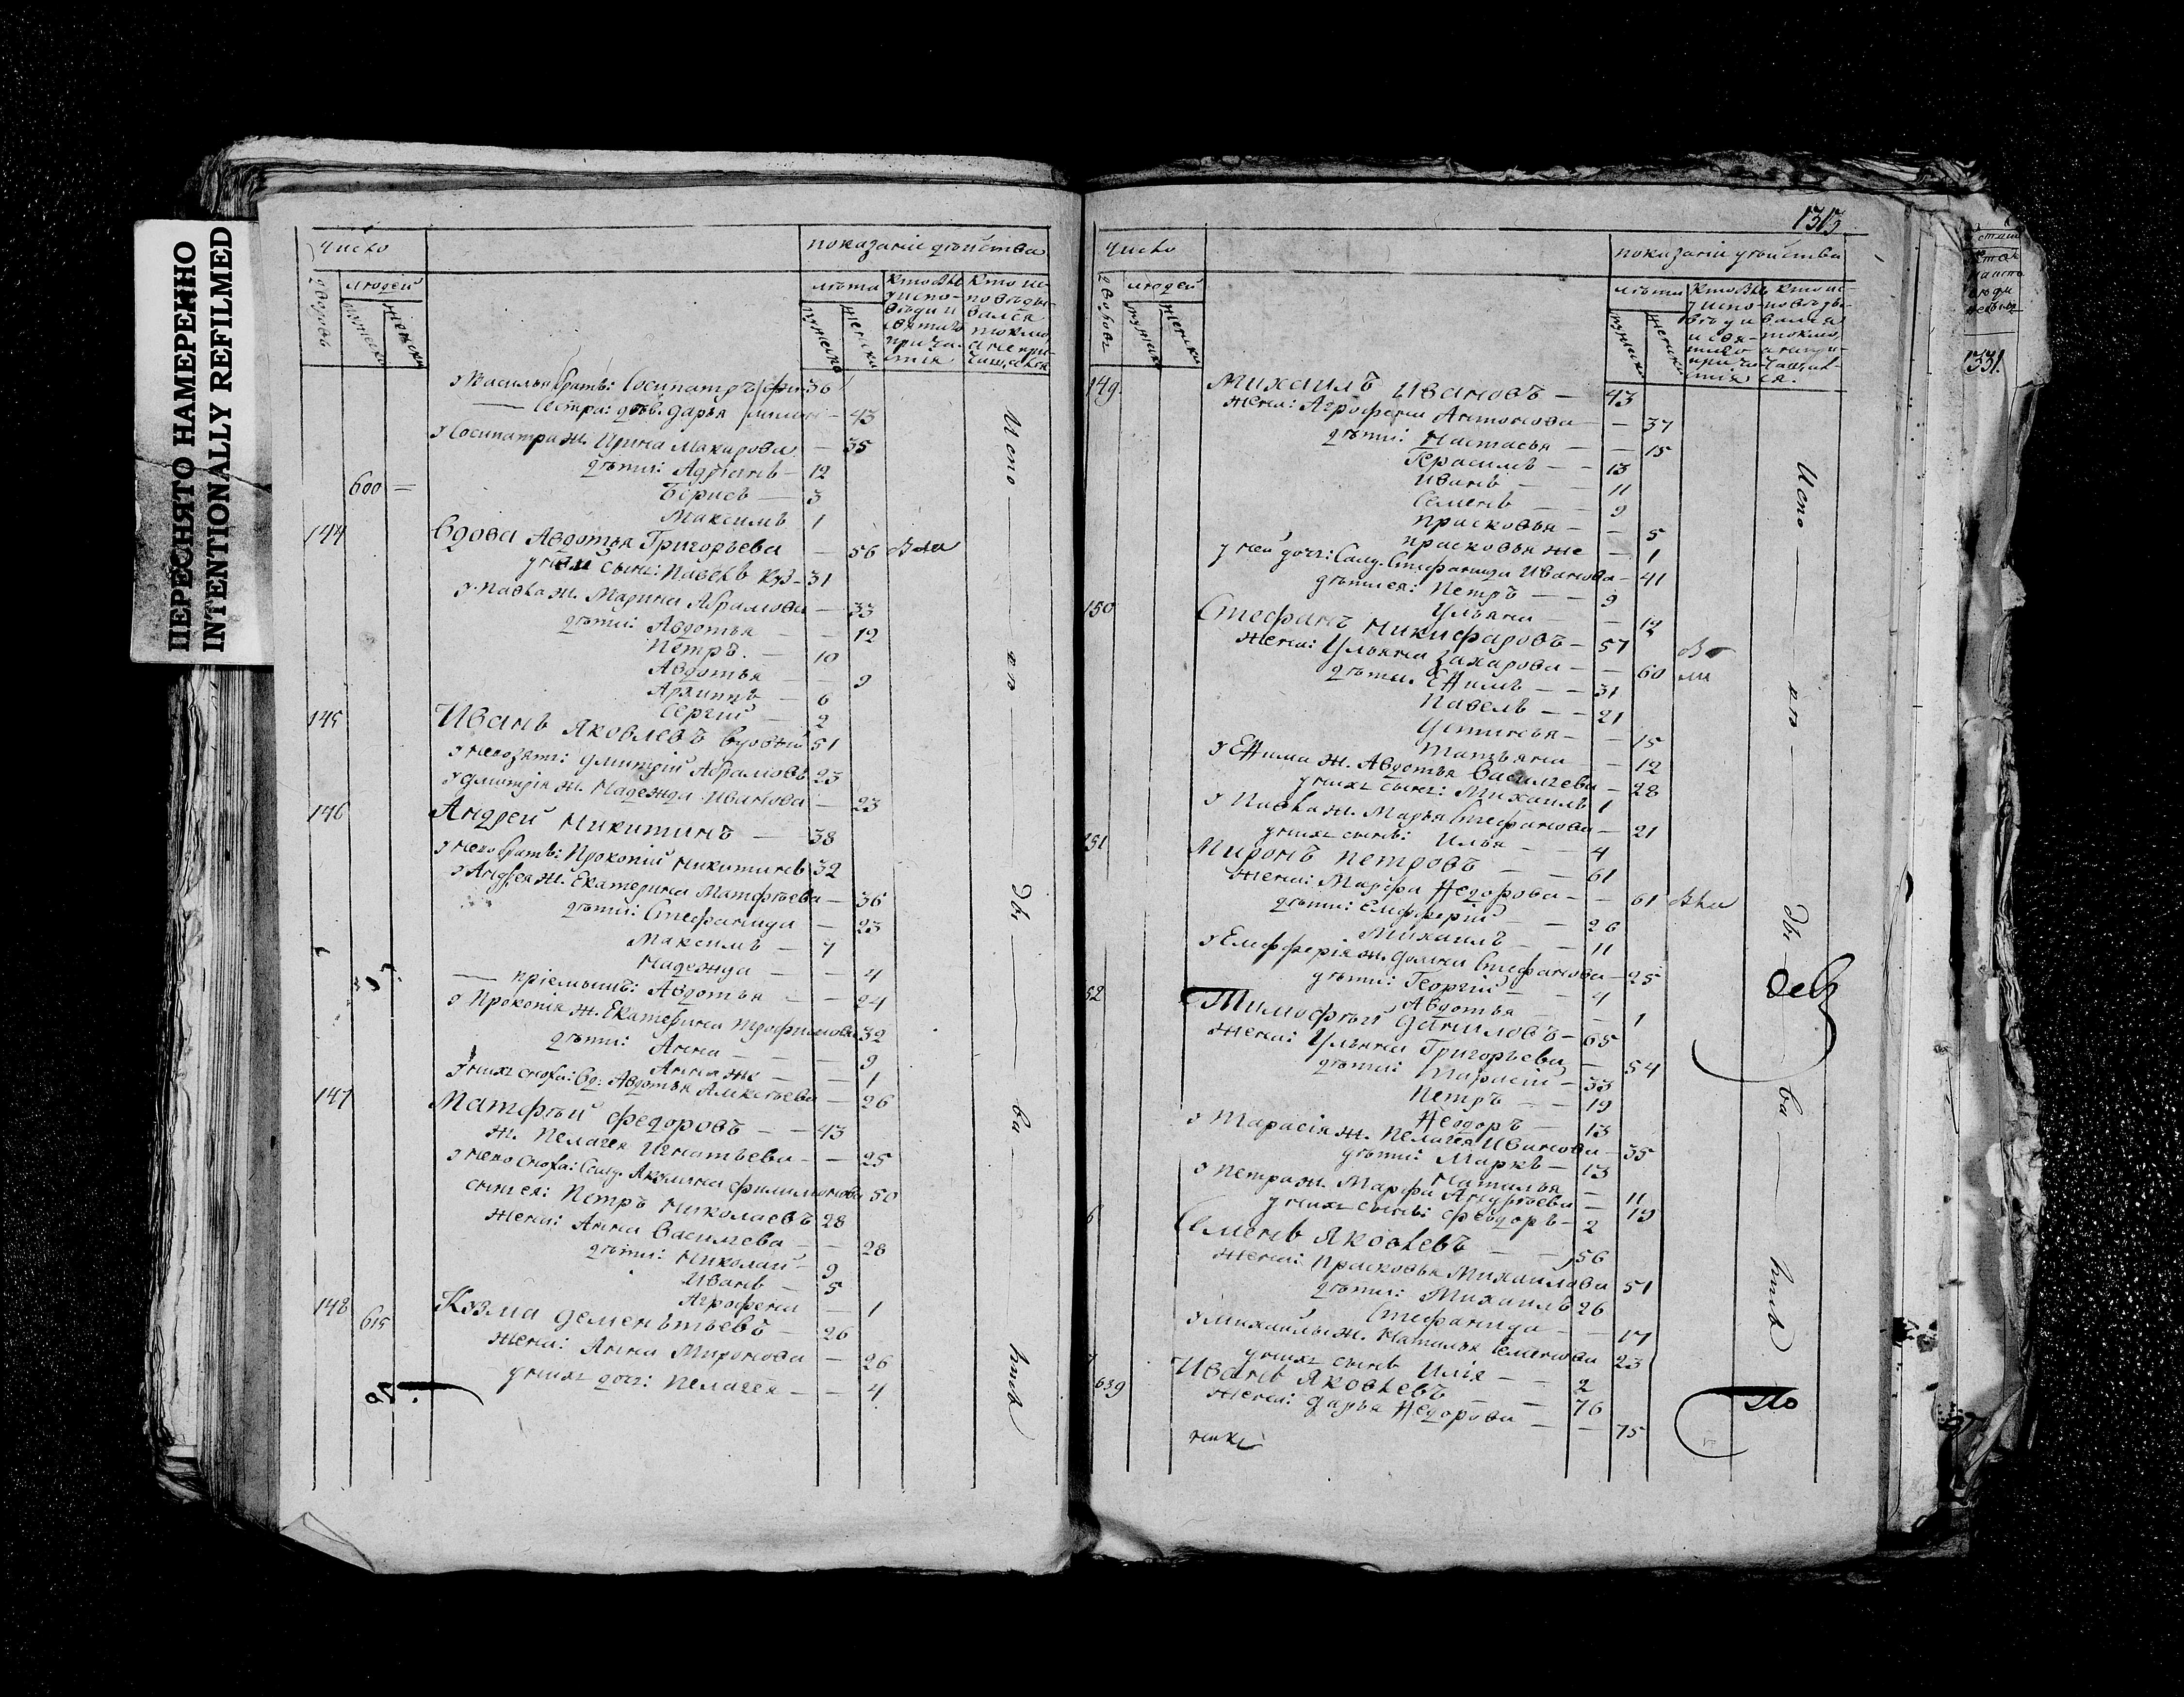 ПЕРЕСНЯТО НАМЕРЕННО
INTENTIONALLY REFILMED
Число
показаніи дѣйства
дворовъ
людей
лѣта
мужеска
женска
мужеска
женска
у Василья братъ: Сосипатръ 36
сестра: дѣв: Дарья — 43
у Сосипатра ж. Ирина Макарова — 35
дѣти: Адріанъ — 12
600 —
Борисъ — 3
Максимъ — 1
144 Вдова Авдотья Григорьева — 56
у ней сынъ: Павелъ — 31
у Павла ж. Марина Абрамова — 33
дѣти: Авдотья — — 12
Петръ — 10
Авдотья — — 9
Архиппъ — 6
Сергій — 2
145 Иванъ Яковлевъ вдовый 51
у него зять: Дмитрій Абрамовъ 23
у Дмитрія ж. Надежда Иванова — 23
146 Андрей Никитинъ — 38
у него братъ: Прокопій Никитинъ 32
у Андрея ж. Екатерина Матфѣева — 36
дѣти: Стефанида — 23
Максимъ — 7
Надежда — — 4
— пріемышъ: Авдотья — — 24
у Прокопія ж. Екатерина Трофимова 32
дѣти: Анна — — 9
Анна же — — 1
у нихъ сноха: вд: Авдотья Алексѣева — 26
147 Матфѣй Федоровъ — 43
ж. Пелагея Игнатьева — — 25
у него сноха: Солд. Акилина Филимонова 50
сынъ ея: Петръ Николаевъ 28
жена: Анна Васильева — 28
дѣти: Николай — 9
Иванъ — 5
Агрофена — 1
148 615 Козма Дементьевъ — 26
жена: Анна Миронова — 26
у нихъ дочь: Пелагея — — 4
Испо вѣ ды ва
1313
Число
показаніи дѣйства
дворовъ
людей
лѣта
мужеска
женска
мужеска
женска
149 Михаилъ Ивановъ — 43
жена: Агрофена Антонова — — 37
дѣти: Настасья — — 15
Герасимъ — — 13
Иванъ — — 11
Семенъ — — 9
Прасковья — — 5
Прасковья же — 1
Солд. Стефанида Иванова — 41
дѣти ея: Петръ — — 9
Ульяна — — 12
150 Стефанъ Никифоровъ — 57
жена: Ульяна Захарова — — 60
дѣти: Ефимъ — — 31
Павелъ — — 21
Устинья — — 15
Татьяна — 12
у Ефима ж. Авдотья Васильева — 28
у нихъ сынъ: Михаилъ 1
у Павла ж. Марья Стефанова — 21
у нихъ сынъ: Илья — — 4
151 Миронъ Петровъ — — 61
жена: Марфа Федорова — — 61
дѣти: Елефферій — — 26
Михаилъ — — 11
у Елефферія ж. Стефанова — 25
дѣти: Георгій — — 4
Авдотья — — 1
52 Тимофѣй Даниловъ — 65
жена: Ульяна Григорьева — 54
дѣти: Тарасій — 33
Петръ — — 19
Федоръ — 13
у Тарасія ж. Пелагея Иванова — 35
дѣти: Маркъ — 13
Наталья — 11
у Петра ж. Марфа Андрѣева — 19
у нихъ сынъ: Феодоръ — 2
6 Семенъ Яковлевъ — — 56
жена: Прасковья Михайлова 51
дѣти: Михаилъ 26
Стефанида — — 17
у Михайлы ж. Наталья Семенова 23
у нихъ сынъ Илія — — 2
7 639 Иванъ Яковлевъ — — 76
жена: Дарья Федорова — — 75
у нихъ
Испо вѣ ды ва
1331